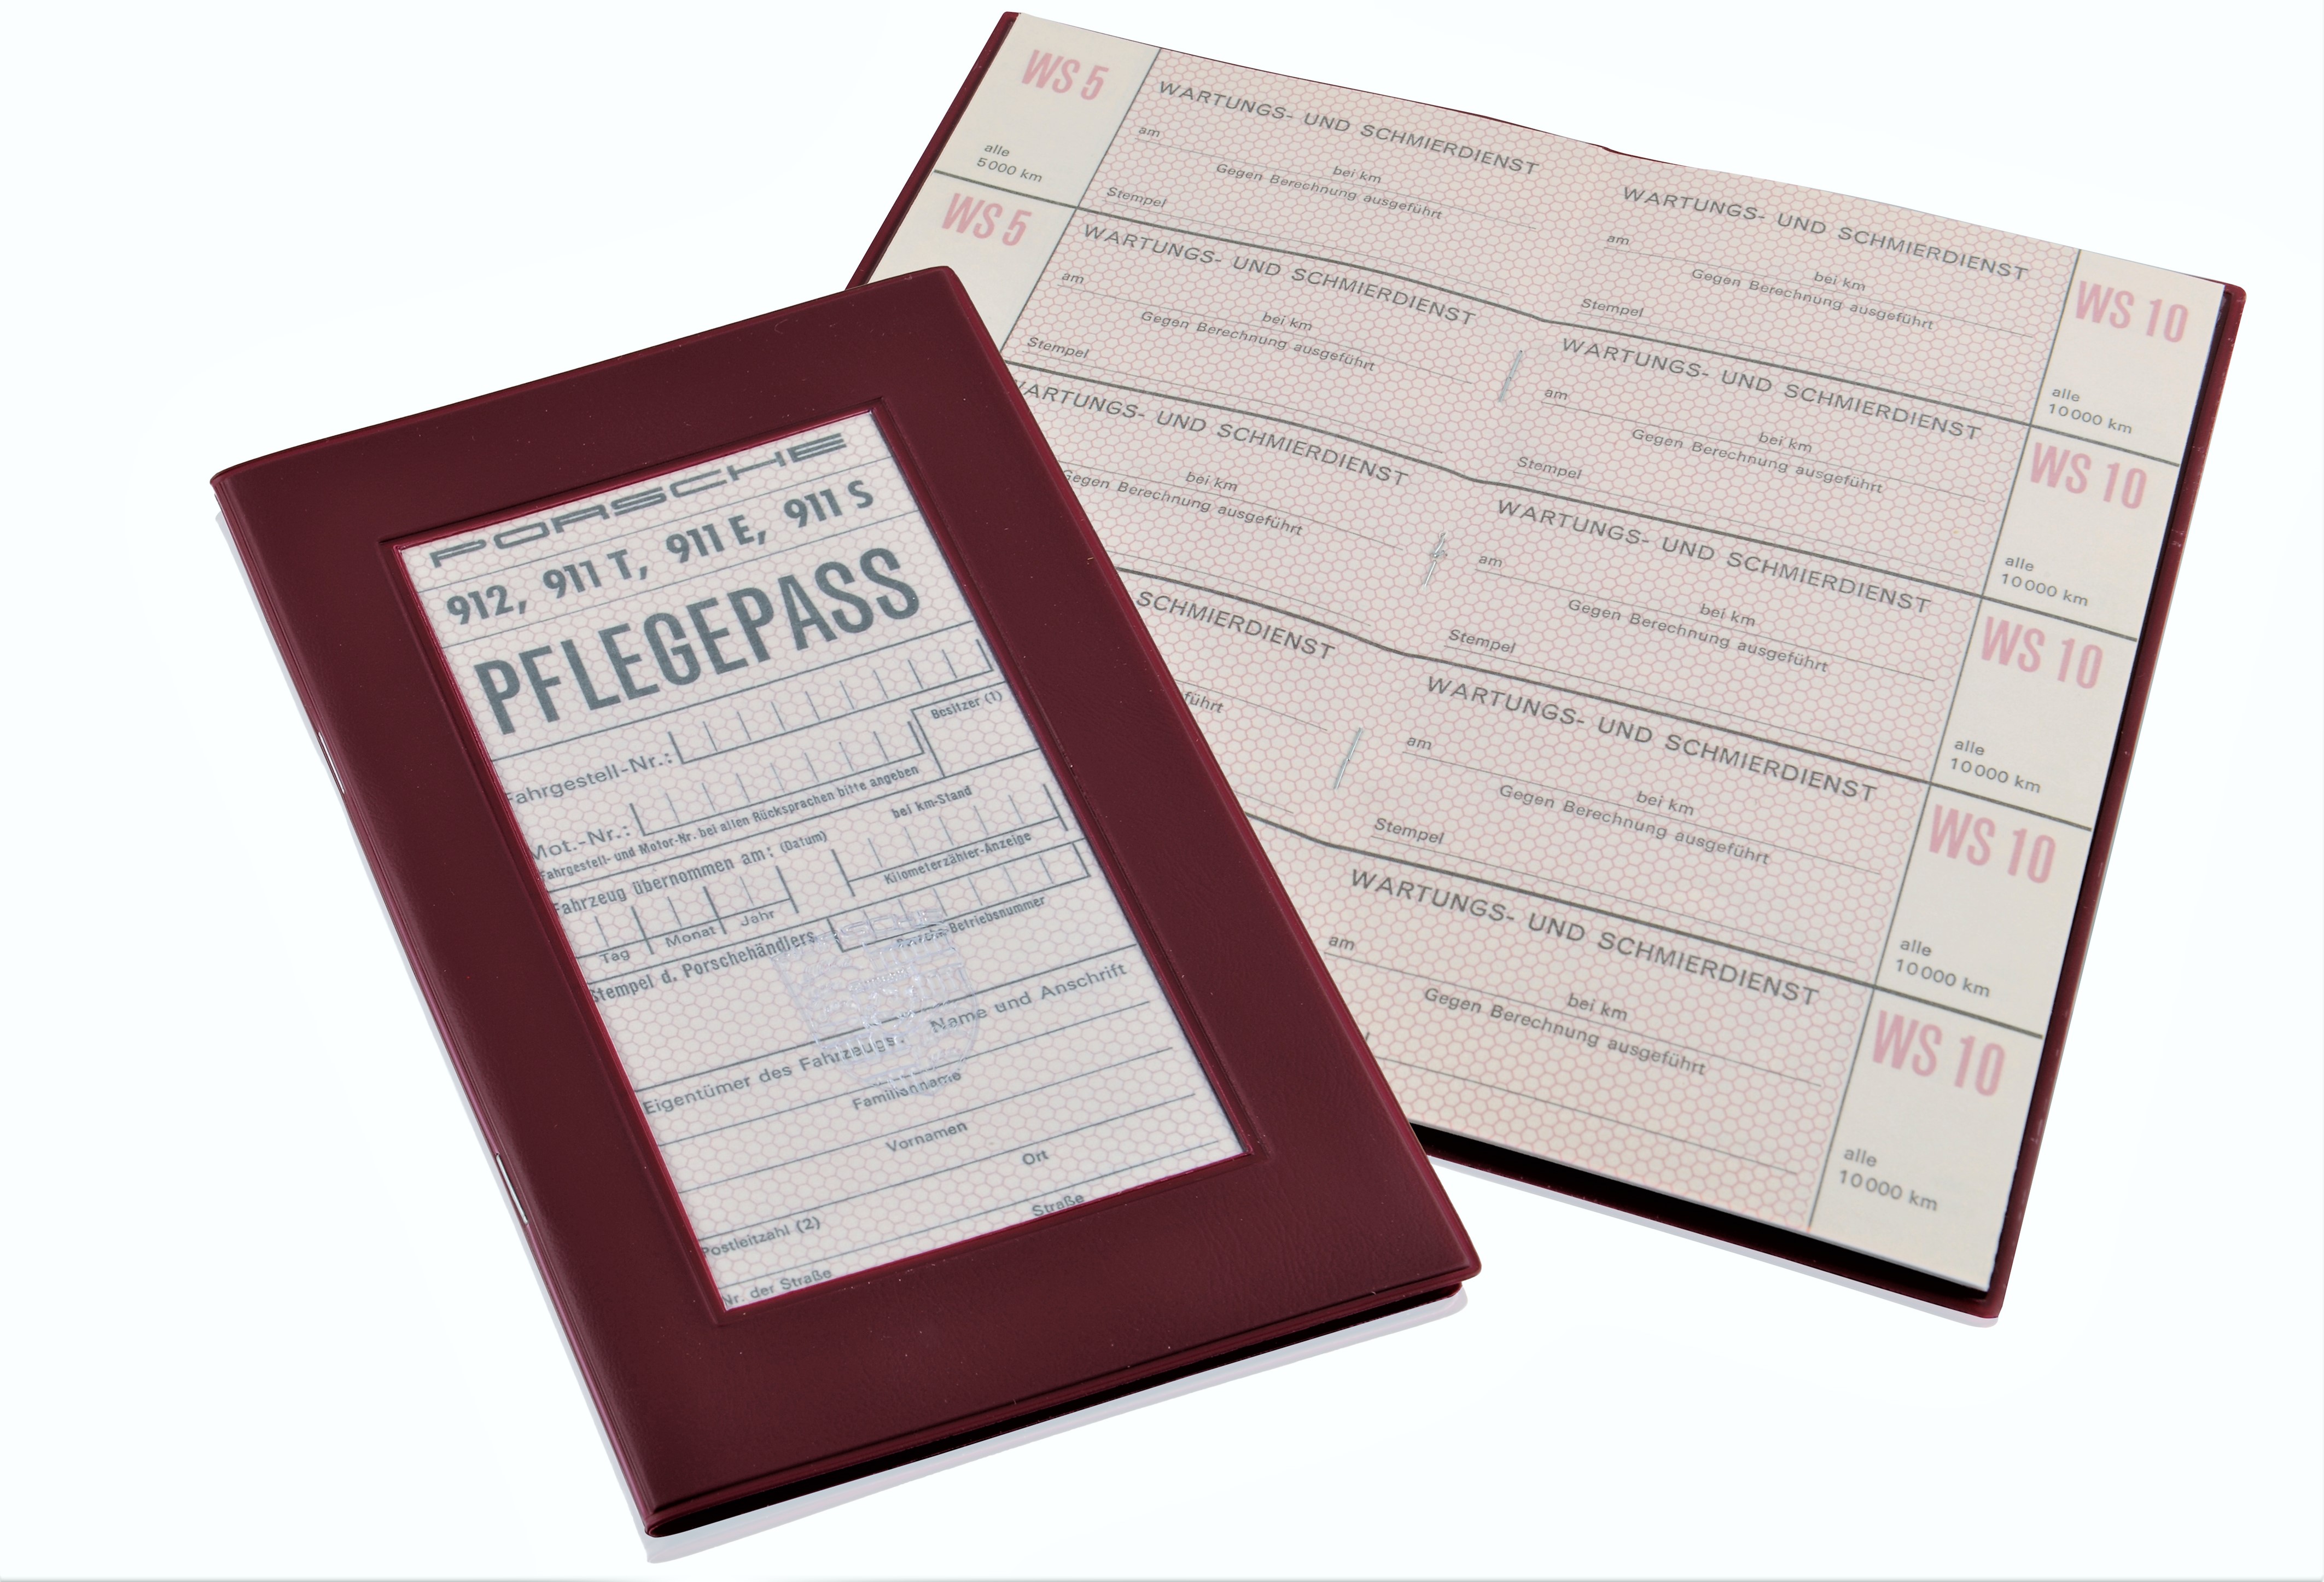 PORSCHE
912, 911 T, 911 E, 911 S
PFLEGEPASS
Fahrgestell-Nr.:
Mot.-Nr.:
Besitzer (1)
Fahrgestell- und Motor-Nr. bei allen Rücksprachen bitte angeben
Fahrzeug übernommen am: (Datum)
bei km-Stand
Tag Monat Jahr
Kilometerzähler-Anzeige
Stempel d. Porschehändlers
Porsche-Betriebsnummer
Eigentümer des Fahrzeugs:
Name und Anschrift
Familienname
Vornamen
Postleitzahl (2)
Ort
Nr. der Straße
Straße
WS 5
alle
5000 km
WARTUNGS- UND SCHMIERDIENST
am
bei km
Gegen Berechnung ausgeführt
Stempel
WS 5
WARTUNGS- UND SCHMIERDIENST
am
bei km
Gegen Berechnung ausgeführt
Stempel
WARTUNGS- UND SCHMIERDIENST
bei km
Gegen Berechnung ausgeführt
SCHMIERDIENST
führt
WARTUNGS- UND SCHMIERDIENST
am
bei km
Gegen Berechnung ausgeführt
Stempel
WS 10
alle
10000 km
WARTUNGS- UND SCHMIERDIENST
am
bei km
Gegen Berechnung ausgeführt
Stempel
WS 10
alle
10000 km
WARTUNGS- UND SCHMIERDIENST
am
bei km
Gegen Berechnung ausgeführt
Stempel
WS 10
alle
10000 km
WARTUNGS- UND SCHMIERDIENST
am
bei km
Gegen Berechnung ausgeführt
Stempel
WS 10
alle
10000 km
WARTUNGS- UND SCHMIERDIENST
am
bei km
Gegen Berechnung ausgeführt
WS 10
alle
10000 km